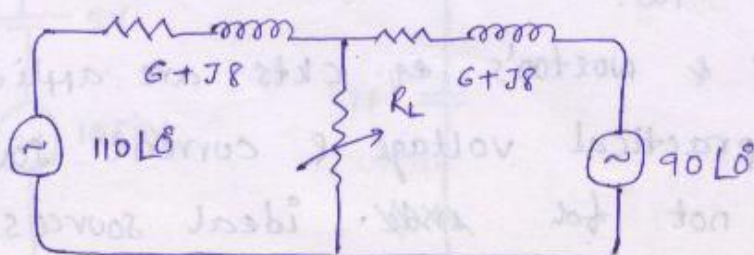 6+J8
6+J8
R_L
110∠0°
90∠0°